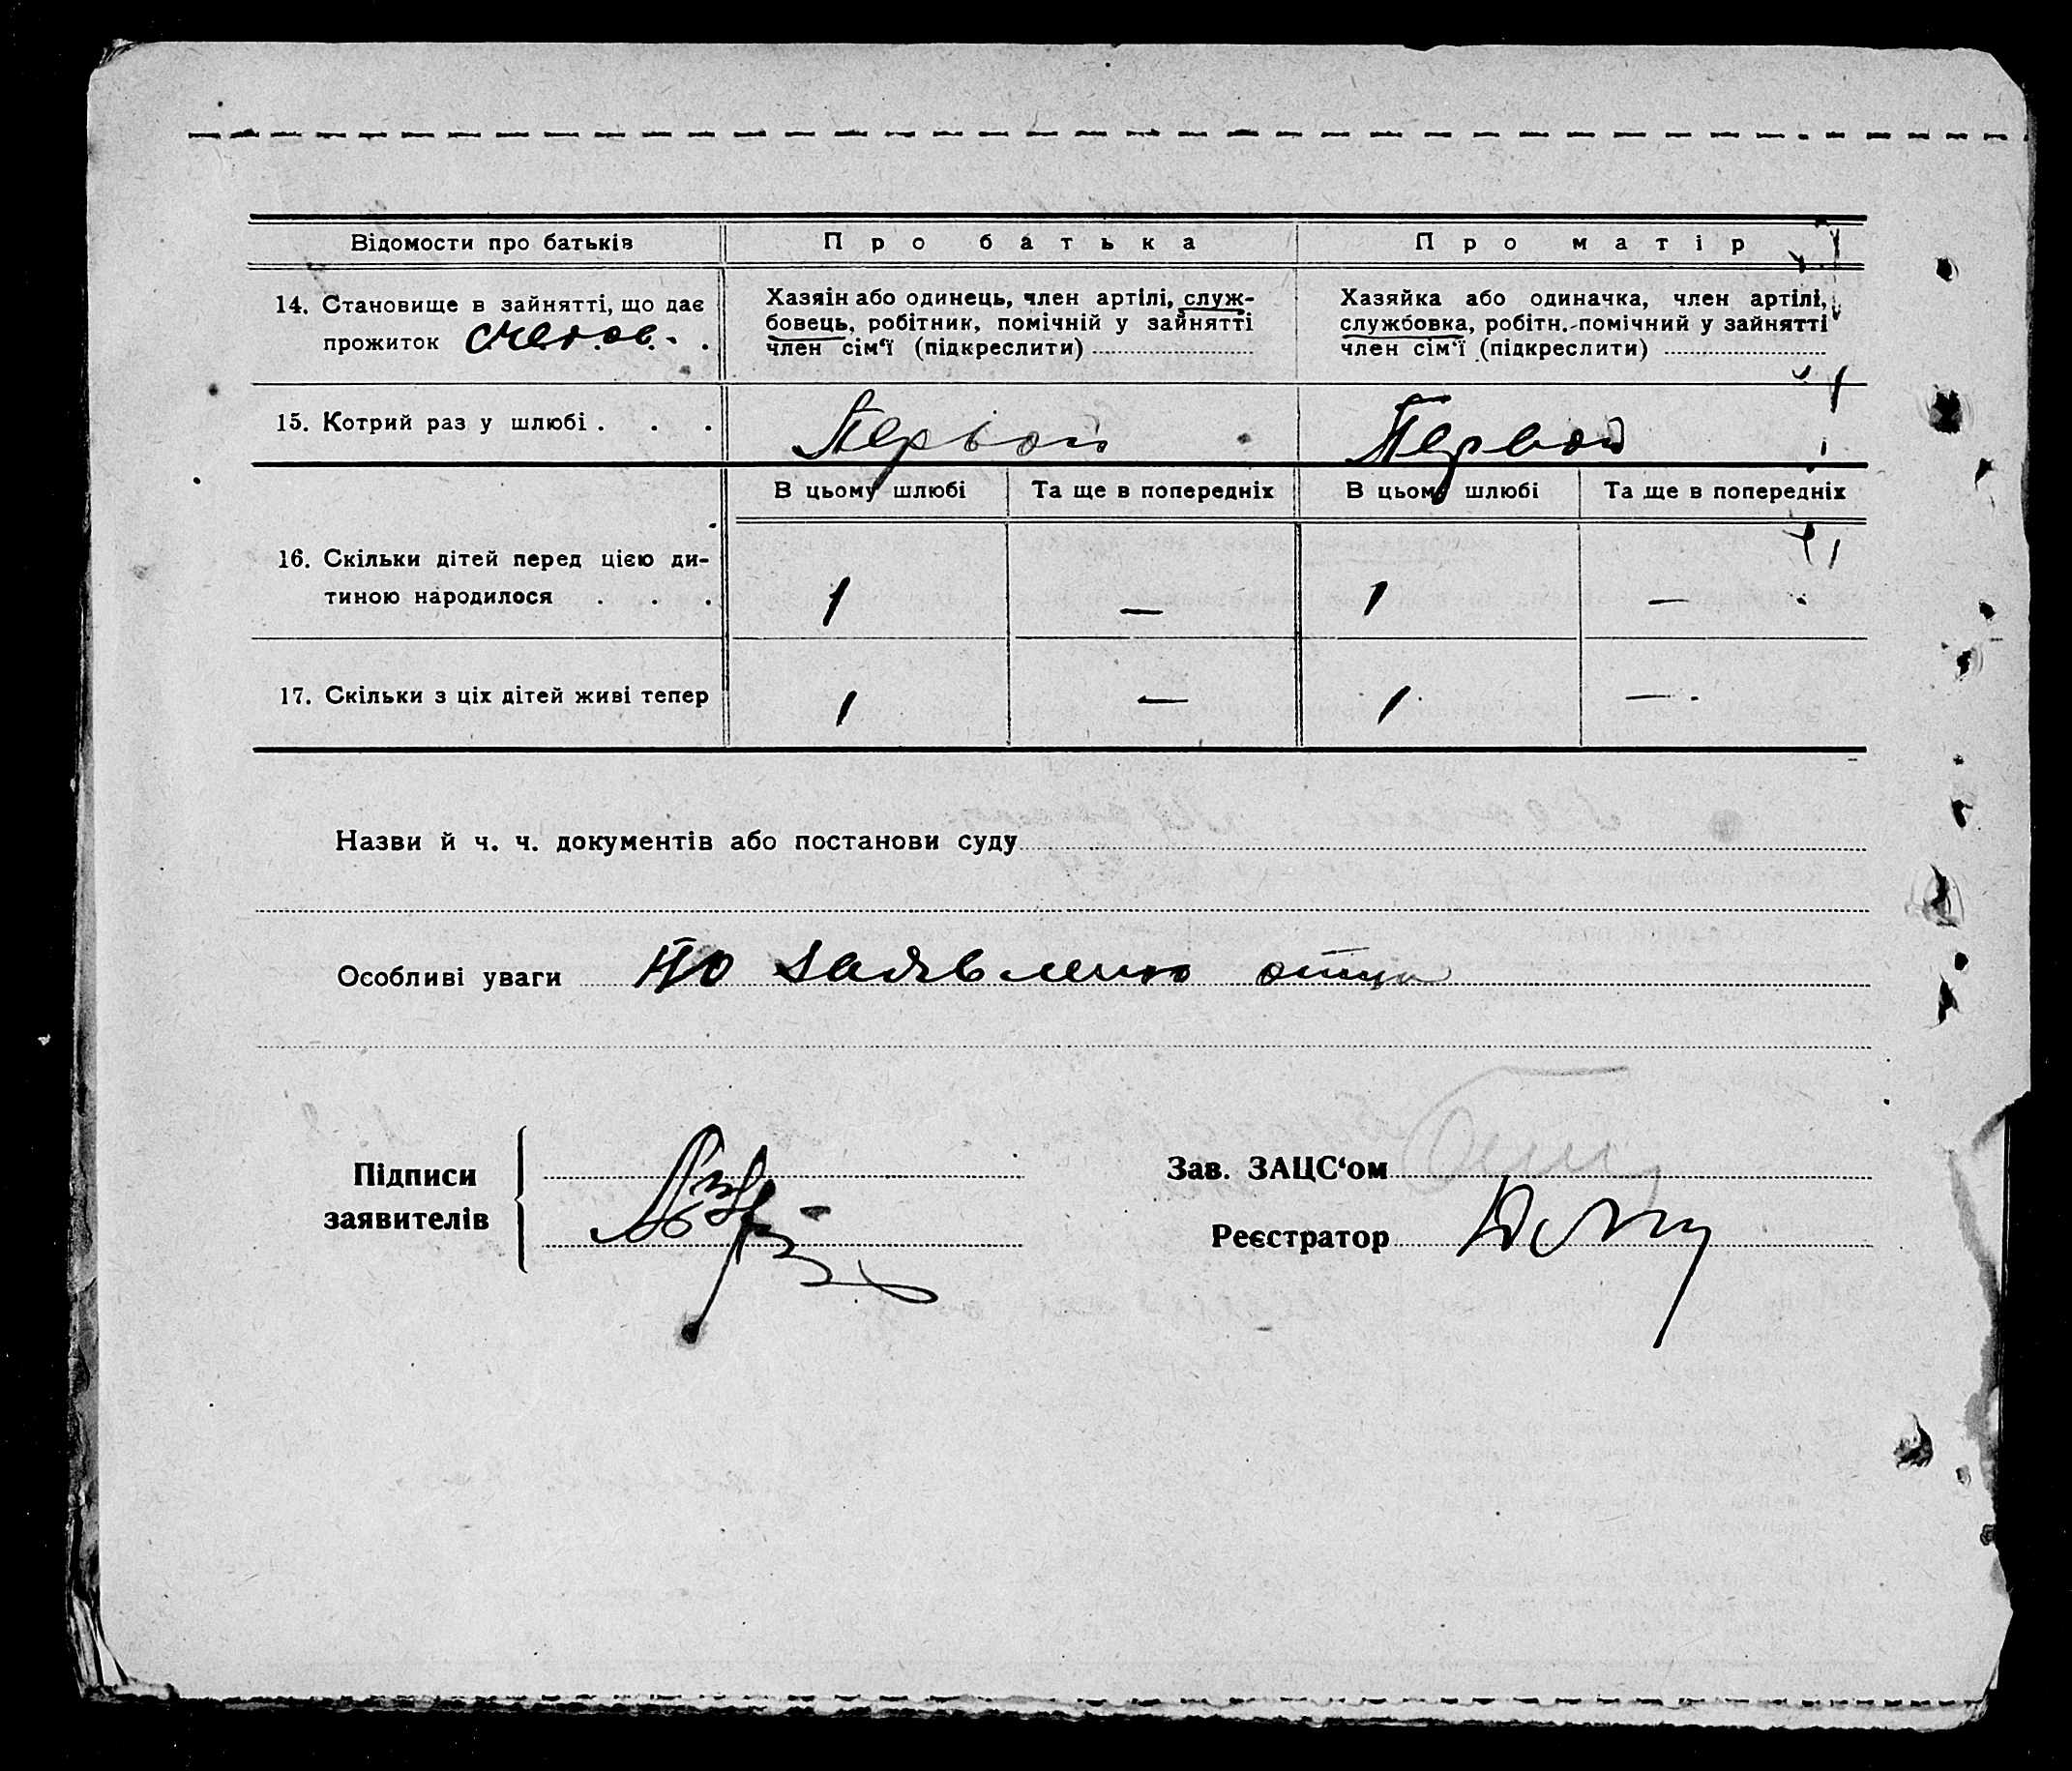 Відомости про батьків
Про батька
Про матір
14. Становище в зайнятті, що дає
прожиток счетов.
Хазяін або одинець, член артілі, служ-
бовець, робітник, помічній у зайнятті
член сім'ї (підкреслити)
Хазяйка або одиначка, член артілі,
службовка, робітн.-помічний у зайнятті
член сім'ї (підкреслити)
15. Котрий раз у шлюбі . . .
Первый
Первый
В цьому шлюбі
Та ще в попередніх
В цьому шлюбі
Та ще в попередніх
16. Скільки дітей перед цією ди-
тиною народилося . . .
1
—
1
—
17. Скільки з ціх дітей живі тепер
1
—
1
—
Назви й ч. ч. документів або постанови суду
Особливі уваги По заявлению отца
Підписи
заявителів
Зав. ЗАЦС'ом
Реєстратор